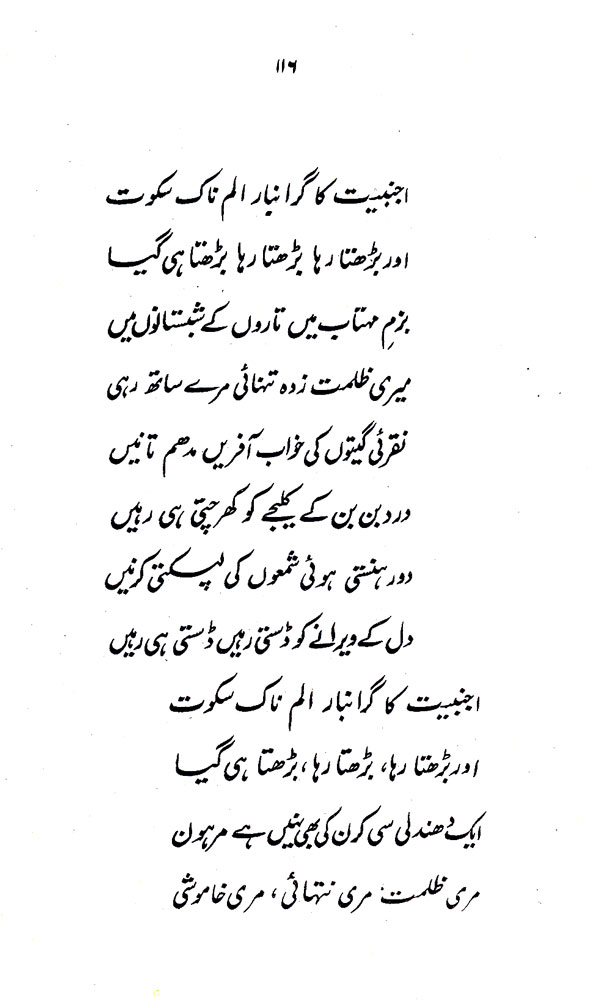 ۱۱۶
اجنبیت کا گرانبار الم ناک سکوت
اور بڑھتا رہا بڑھتا رہا بڑھتا ہی گیا
بزمِ مہتاب میں تاروں کے شبستانوں میں
میری ظلمت زدہ تنہائی مرے ساتھ رہی
نقرئی گیتوں کی خواب آفریں مدھم تانیں
درد بن بن کے کلیجے کو کھرچتی ہی رہیں
دور ہنستی ہوئی شمعوں کی لپکتی کرنیں
دل کے ویرانے کو ڈستی رہیں ڈستی ہی رہیں
اجنبیت کا گرانبار الم ناک سکوت
اور بڑھتا رہا، بڑھتا رہا، بڑھتا ہی گیا
ایک دھندلی سی کرن کی بھی نہیں ہے مرہون
مری ظلمت مری تنہائی، مری خاموشی